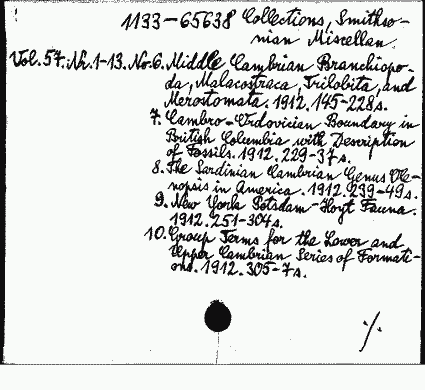 1133-65638 Collections, Smithso-
nian Miscellan.
Vol. 57. Nr. 1-13. No. 6. Middle Cambrian Branchiopo-
da, Malacostraca, Trilobita, and
Merostomata. 1912. 145-228 s.
7. Cambro-Ordovician Boundary in
British Columbia with Description
of Fossils. 1912. 229-37 s.
8. The Sardinian Cambrian Genus Ole-
nopsis in America. 1912. 239-49 s.
9. New York Potsdam-Hoyt Fauna.
1912. 251-304 s.
10. Group Terms for the Lower and
Upper Cambrian Series of Formati-
ons. 1912. 305-7 s.